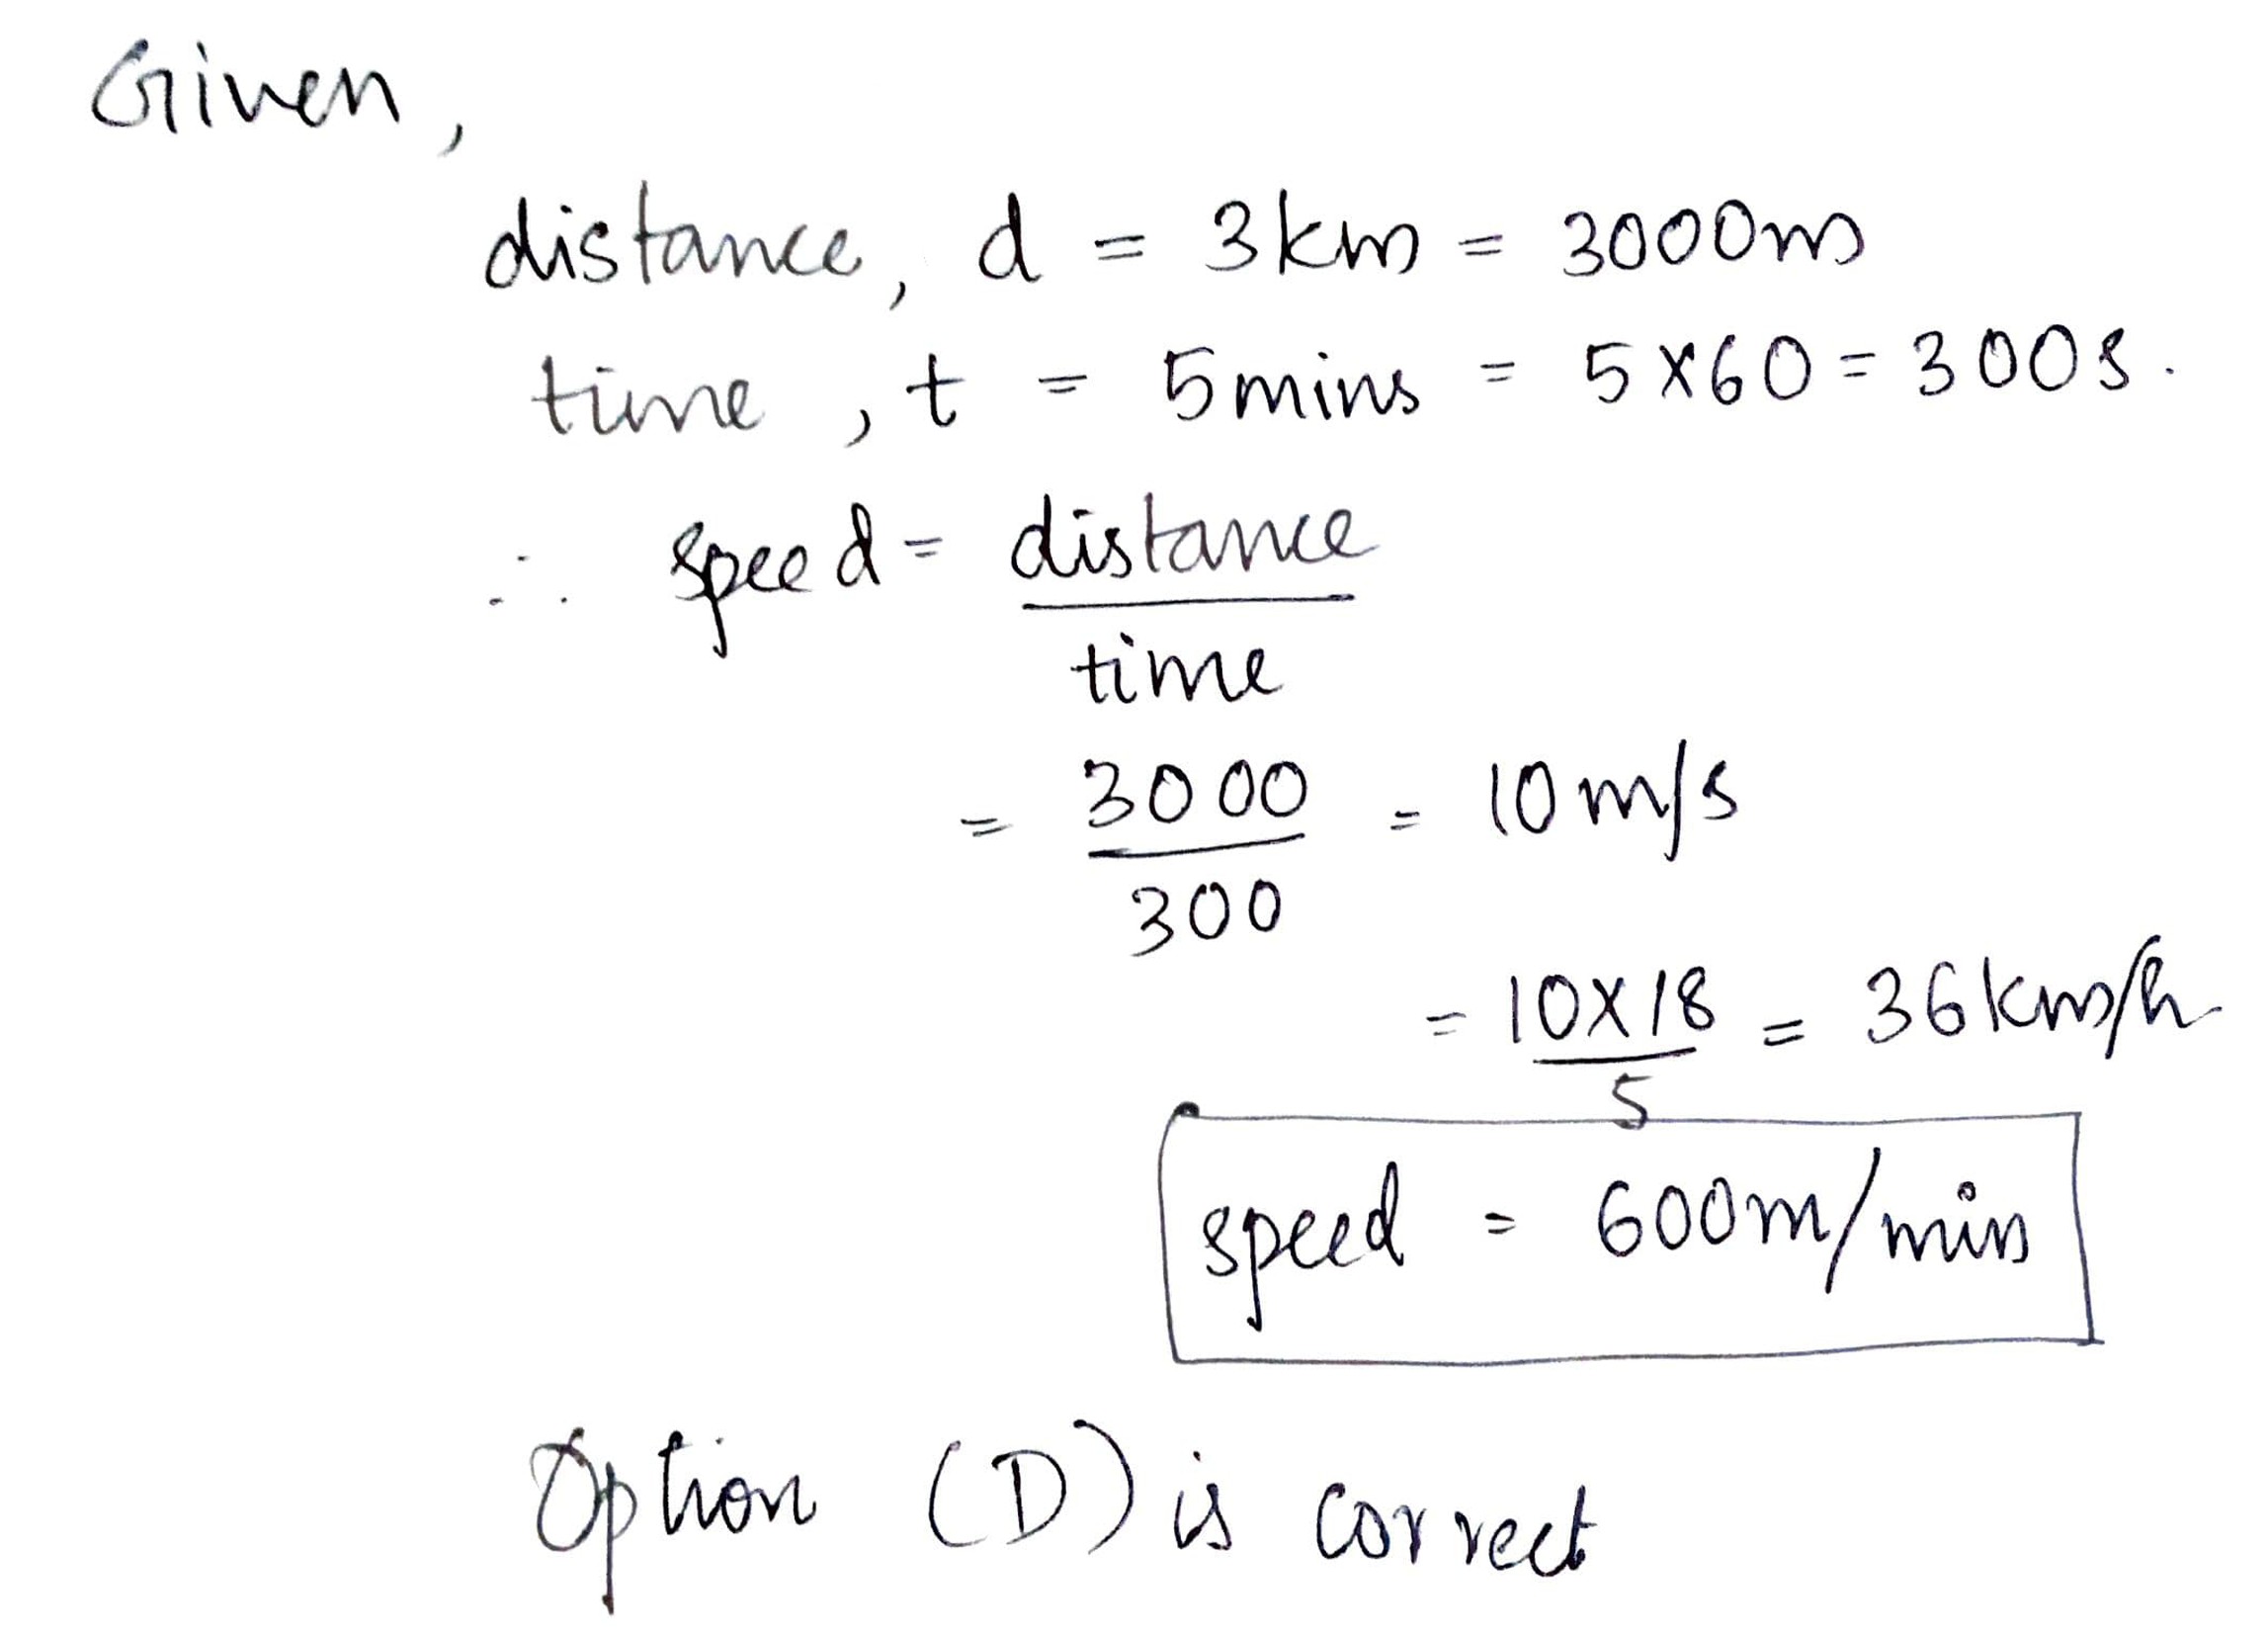 Given,
distance, d = 3km = 3000m
time, t = 5mins = 5×60 = 300s.
∴ speed = distance
time
= 3000 = 10m/s
300
= 10×18 = 36km/h
5
speed = 600m/min
Option (D) is correct